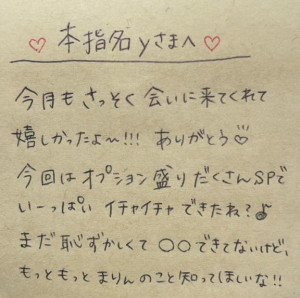 ♡ 本指名yさまへ ♡
今月もさっそく会いに来てくれて
嬉しかったよ〜!!! ありがとう♡
今回はオプション盛りだくさんSPで
いーっぱいイチャイチャできたね?♪
まだ恥ずかしくて〇〇できてないけど、
もっともっとまりんのこと知ってほしいな!!